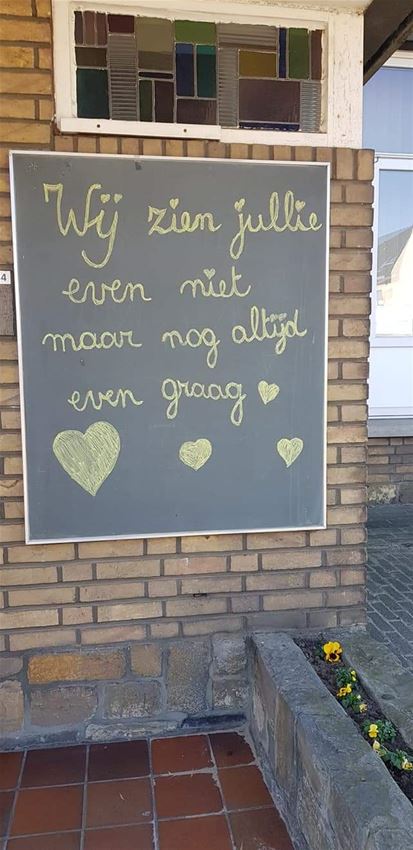 Wij zien jullie
even niet
maar nog altijd
even graag
4